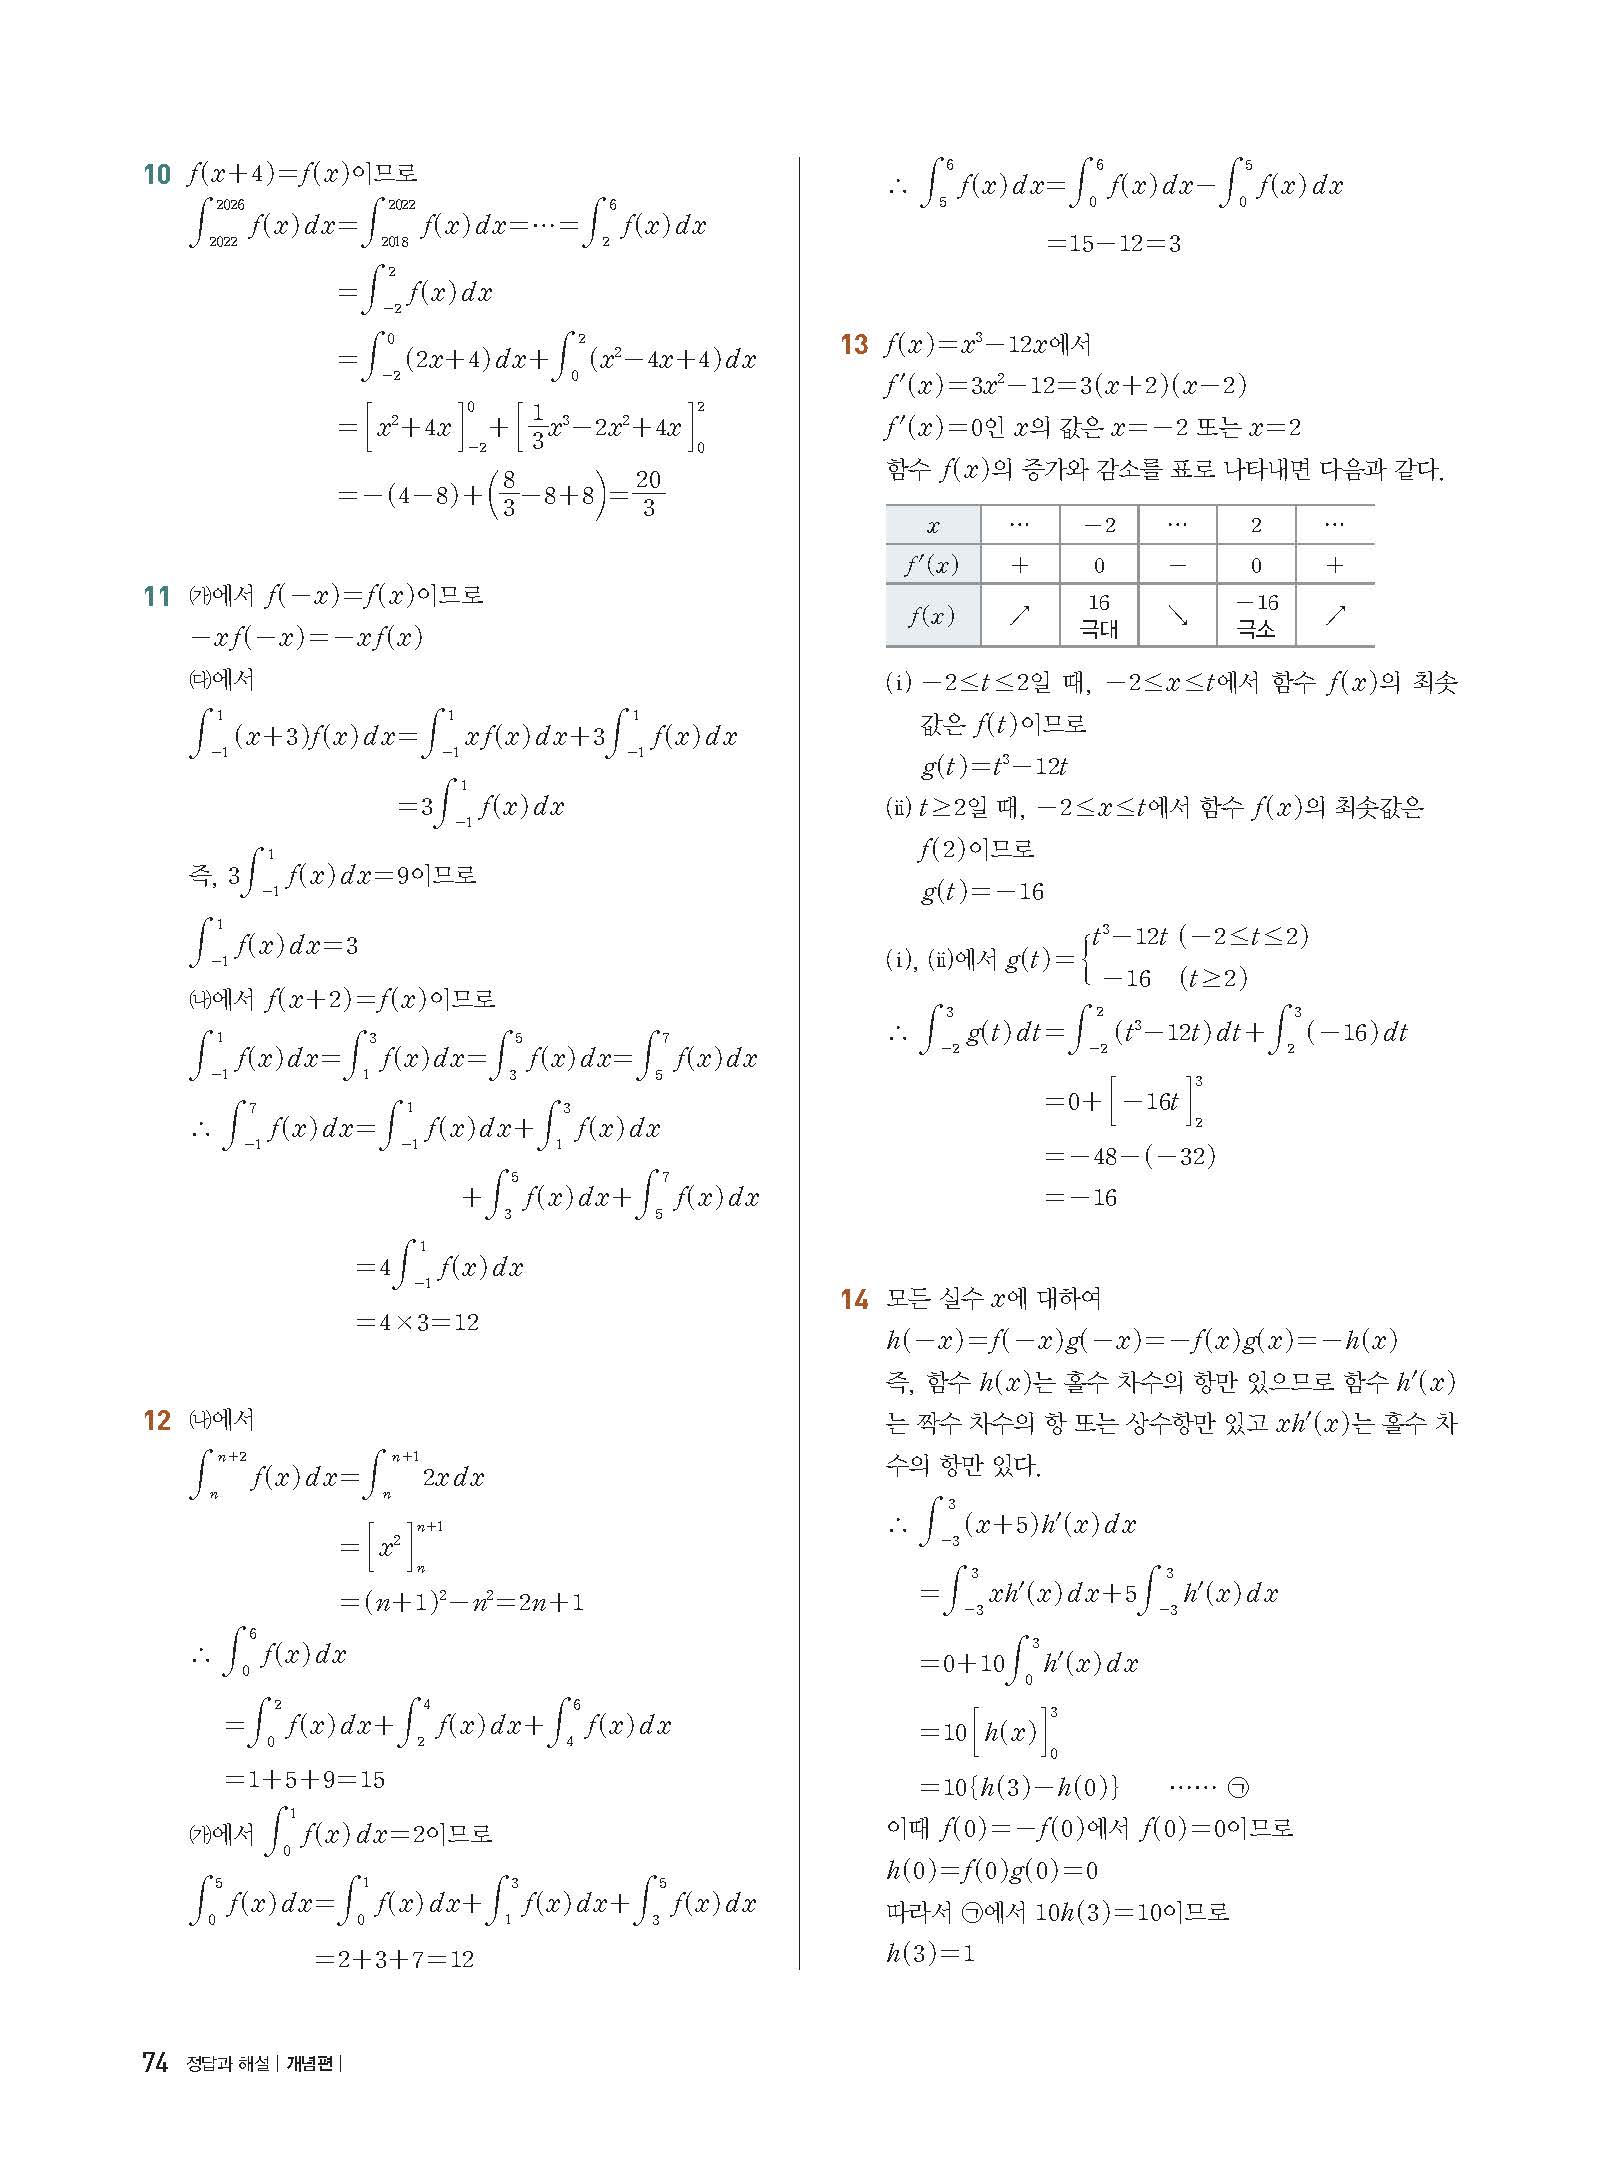 10 f(x+4)=f(x)이므로
∫_{2022}^{2026} f(x)dx=∫_{2018}^{2022} f(x)dx=⋯=∫_{2}^{6} f(x)dx
=∫_{-2}^{2} f(x)dx
=∫_{-2}^{0} (2x+4)dx+∫_{0}^{2} (x²-4x+4)dx
=[x²+4x]_{-2}^{0}+[1/3 x³-2x²+4x]_{0}^{2}
=-(4-8)+(8/3-8+8)=20/3
11 ㈎에서 f(-x)=f(x)이므로
-xf(-x)=-xf(x)
㈐에서
∫_{-1}^{1} (x+3)f(x)dx=∫_{-1}^{1} xf(x)dx+3∫_{-1}^{1} f(x)dx
=3∫_{-1}^{1} f(x)dx
즉, 3∫_{-1}^{1} f(x)dx=9이므로
∫_{-1}^{1} f(x)dx=3
㈏에서 f(x+2)=f(x)이므로
∫_{-1}^{1} f(x)dx=∫_{1}^{3} f(x)dx=∫_{3}^{5} f(x)dx=∫_{5}^{7} f(x)dx
∴ ∫_{-1}^{7} f(x)dx=∫_{-1}^{1} f(x)dx+∫_{1}^{3} f(x)dx
+∫_{3}^{5} f(x)dx+∫_{5}^{7} f(x)dx
=4∫_{-1}^{1} f(x)dx
=4×3=12
12 ㈏에서
∫_{n}^{n+2} f(x)dx=∫_{n}^{n+1} 2xdx
=[x²]_{n}^{n+1}
=(n+1)²-n²=2n+1
∴ ∫_{0}^{6} f(x)dx
=∫_{0}^{2} f(x)dx+∫_{2}^{4} f(x)dx+∫_{4}^{6} f(x)dx
=1+5+9=15
㈎에서 ∫_{0}^{1} f(x)dx=2이므로
∫_{0}^{5} f(x)dx=∫_{0}^{1} f(x)dx+∫_{1}^{3} f(x)dx+∫_{3}^{5} f(x)dx
=2+3+7=12
∴ ∫_{5}^{6} f(x)dx=∫_{0}^{6} f(x)dx-∫_{0}^{5} f(x)dx
=15-12=3
13 f(x)=x³-12x에서
f′(x)=3x²-12=3(x+2)(x-2)
f′(x)=0인 x의 값은 x=-2 또는 x=2
함수 f(x)의 증가와 감소를 표로 나타내면 다음과 같다.
x ⋯ -2 ⋯ 2 ⋯
f′(x) + 0 - 0 +
f(x) ↗ 16 극대 ↘ -16 극소 ↗
(ⅰ) -2≤t≤2일 때, -2≤x≤t에서 함수 f(x)의 최솟
값은 f(t)이므로
g(t)=t³-12t
(ⅱ) t≥2일 때, -2≤x≤t에서 함수 f(x)의 최솟값은
f(2)이므로
g(t)=-16
(ⅰ), (ⅱ)에서 g(t)={t³-12t (-2≤t≤2)
-16 (t≥2)
∴ ∫_{-2}^{3} g(t)dt=∫_{-2}^{2} (t³-12t)dt+∫_{2}^{3} (-16)dt
=0+[-16t]_{2}^{3}
=-48-(-32)
=-16
14 모든 실수 x에 대하여
h(-x)=f(-x)g(-x)=-f(x)g(x)=-h(x)
즉, 함수 h(x)는 홀수 차수의 항만 있으므로 함수 h′(x)
는 짝수 차수의 항 또는 상수항만 있고 xh′(x)는 홀수 차
수의 항만 있다.
∴ ∫_{-3}^{3} (x+5)h′(x)dx
=∫_{-3}^{3} xh′(x)dx+5∫_{-3}^{3} h′(x)dx
=0+10∫_{0}^{3} h′(x)dx
=10[h(x)]_{0}^{3}
=10{h(3)-h(0)} ⋯⋯ ㉠
이때 f(0)=-f(0)에서 f(0)=0이므로
h(0)=f(0)g(0)=0
따라서 ㉠에서 10h(3)=10이므로
h(3)=1
74 정답과 해설 | 개념편 |